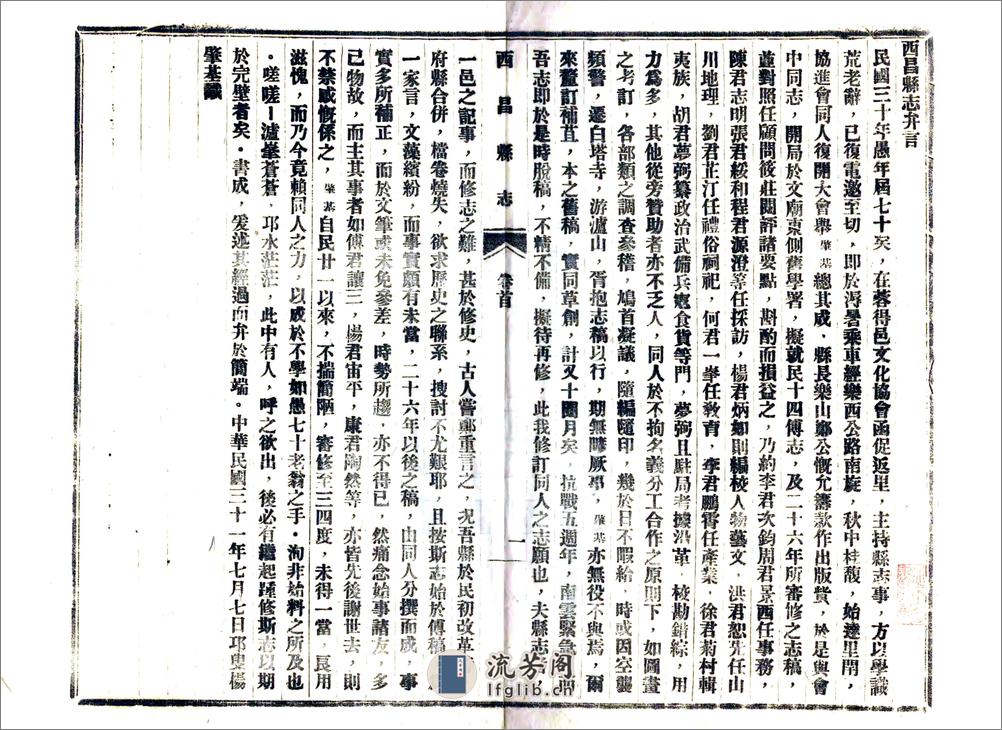 西昌縣志弁言
民國三十年愚年屆七十矣，在蓉得邑文化協會函促返里，主持縣志事，方以學識
荒老辭，已復電邀至切，即於溽暑乘車經樂西公路南旋，秋中桂馥，始達里閈，
協進會同人復開大會舉肇基總其成．縣長樂山鄭公慨允籌款作出版費，於是與會
中同志，開局於文廟東側舊學署，擬就民十四傅志，及二十六年所審修之志稿，
蓝對照任顧問筱莊閱評諸要點，斟酌而損益之，乃約李君次鈞周君景西任事務，
陳君志明張君綏和程君源澄等任採訪，楊君炳如則編校人物藝文．洪君恕先任山
川地理，劉君芷汀任禮俗祠祀，何君一峯任敎育，李君鵬霄任產業，徐君菊村輯
夷族，胡君夢弼纂政治武備兵寇食貨等門，夢弼且駐局考據沿革，校勘錯綜，用
力爲多，其他從旁贊助者亦不乏人，同人於不拘名義分工合作之原則下，如圖畫
之考訂，各部類之調查參稽，鳩首擬議，隨編隨印，幾於日不暇給，時或因空襲
頻警，遷白塔寺，游瀘山，胥抱志稿以行，期無曠厥事，肇基亦無役不與焉，爾
來釐訂補苴，本之舊稿，實同草創，計又十圈月矣，抗戰五週年，南雲緊急
吾志即於是時脫稿，不精不備，擬待再修，此我修訂同人之志願也，夫縣志
西昌縣志
卷首
一
一邑之記事，而修志之難，甚於修史，古人嘗鄭重言之，况吾縣於民初改革，
府縣合併，檔卷燒失，欲求歷史之聯系，搜討不尤艱耶，且按斯志始於傅稿，
一家言，文藻繽紛，而事實頗有未當，二十六年以後之稿，由同人分撰而成，事
實多所補正，而於文筆或未免參差，時勢所趨，亦不得已，然痛念始事諸友，多
已物故，而主其事者如傅君讓三，楊君宙平，康君陶然等，亦皆先後謝世去，則
不禁感慨係之，肇基自民廿一以來，不揣簡陋，審修至三四度，未得一當，良用
滋愧，而乃今竟賴同人之力，以成於不學如愚七十老翁之手．洵非始料之所及也
．嗟嗟！瀘峯蒼蒼，邛水茫茫，此中有人，呼之欲出，後必有繼起踵修斯志以期
於完壁者矣．書成，爰述其經過而弁於簡端。中華民國三十一年七月七日邛奧楊
肇基識
流芳阁
lfglib.cn